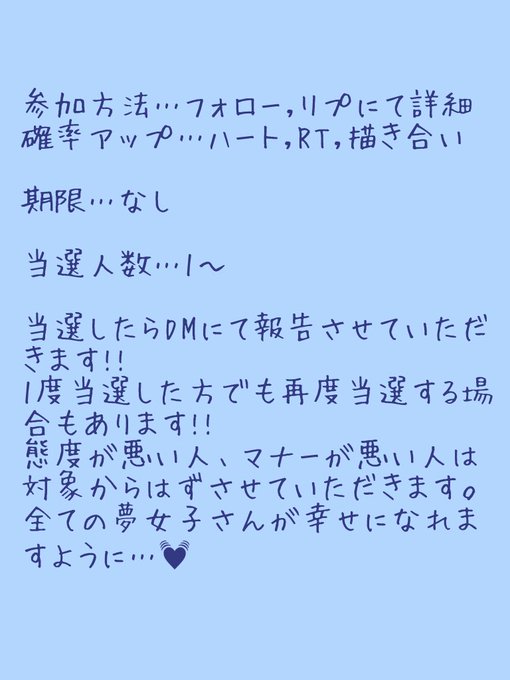 参加方法…フォロー,リプにて詳細
確率アップ…ハート,RT,描き合い
期限…なし
当選人数…1〜
当選したらDMにて報告させていただ
きます!!
1度当選した方でも再度当選する場
合もあります!!
態度が悪い人、マナーが悪い人は
対象からはずさせていただきます。
全ての夢女子さんが幸せになれま
すように…💓